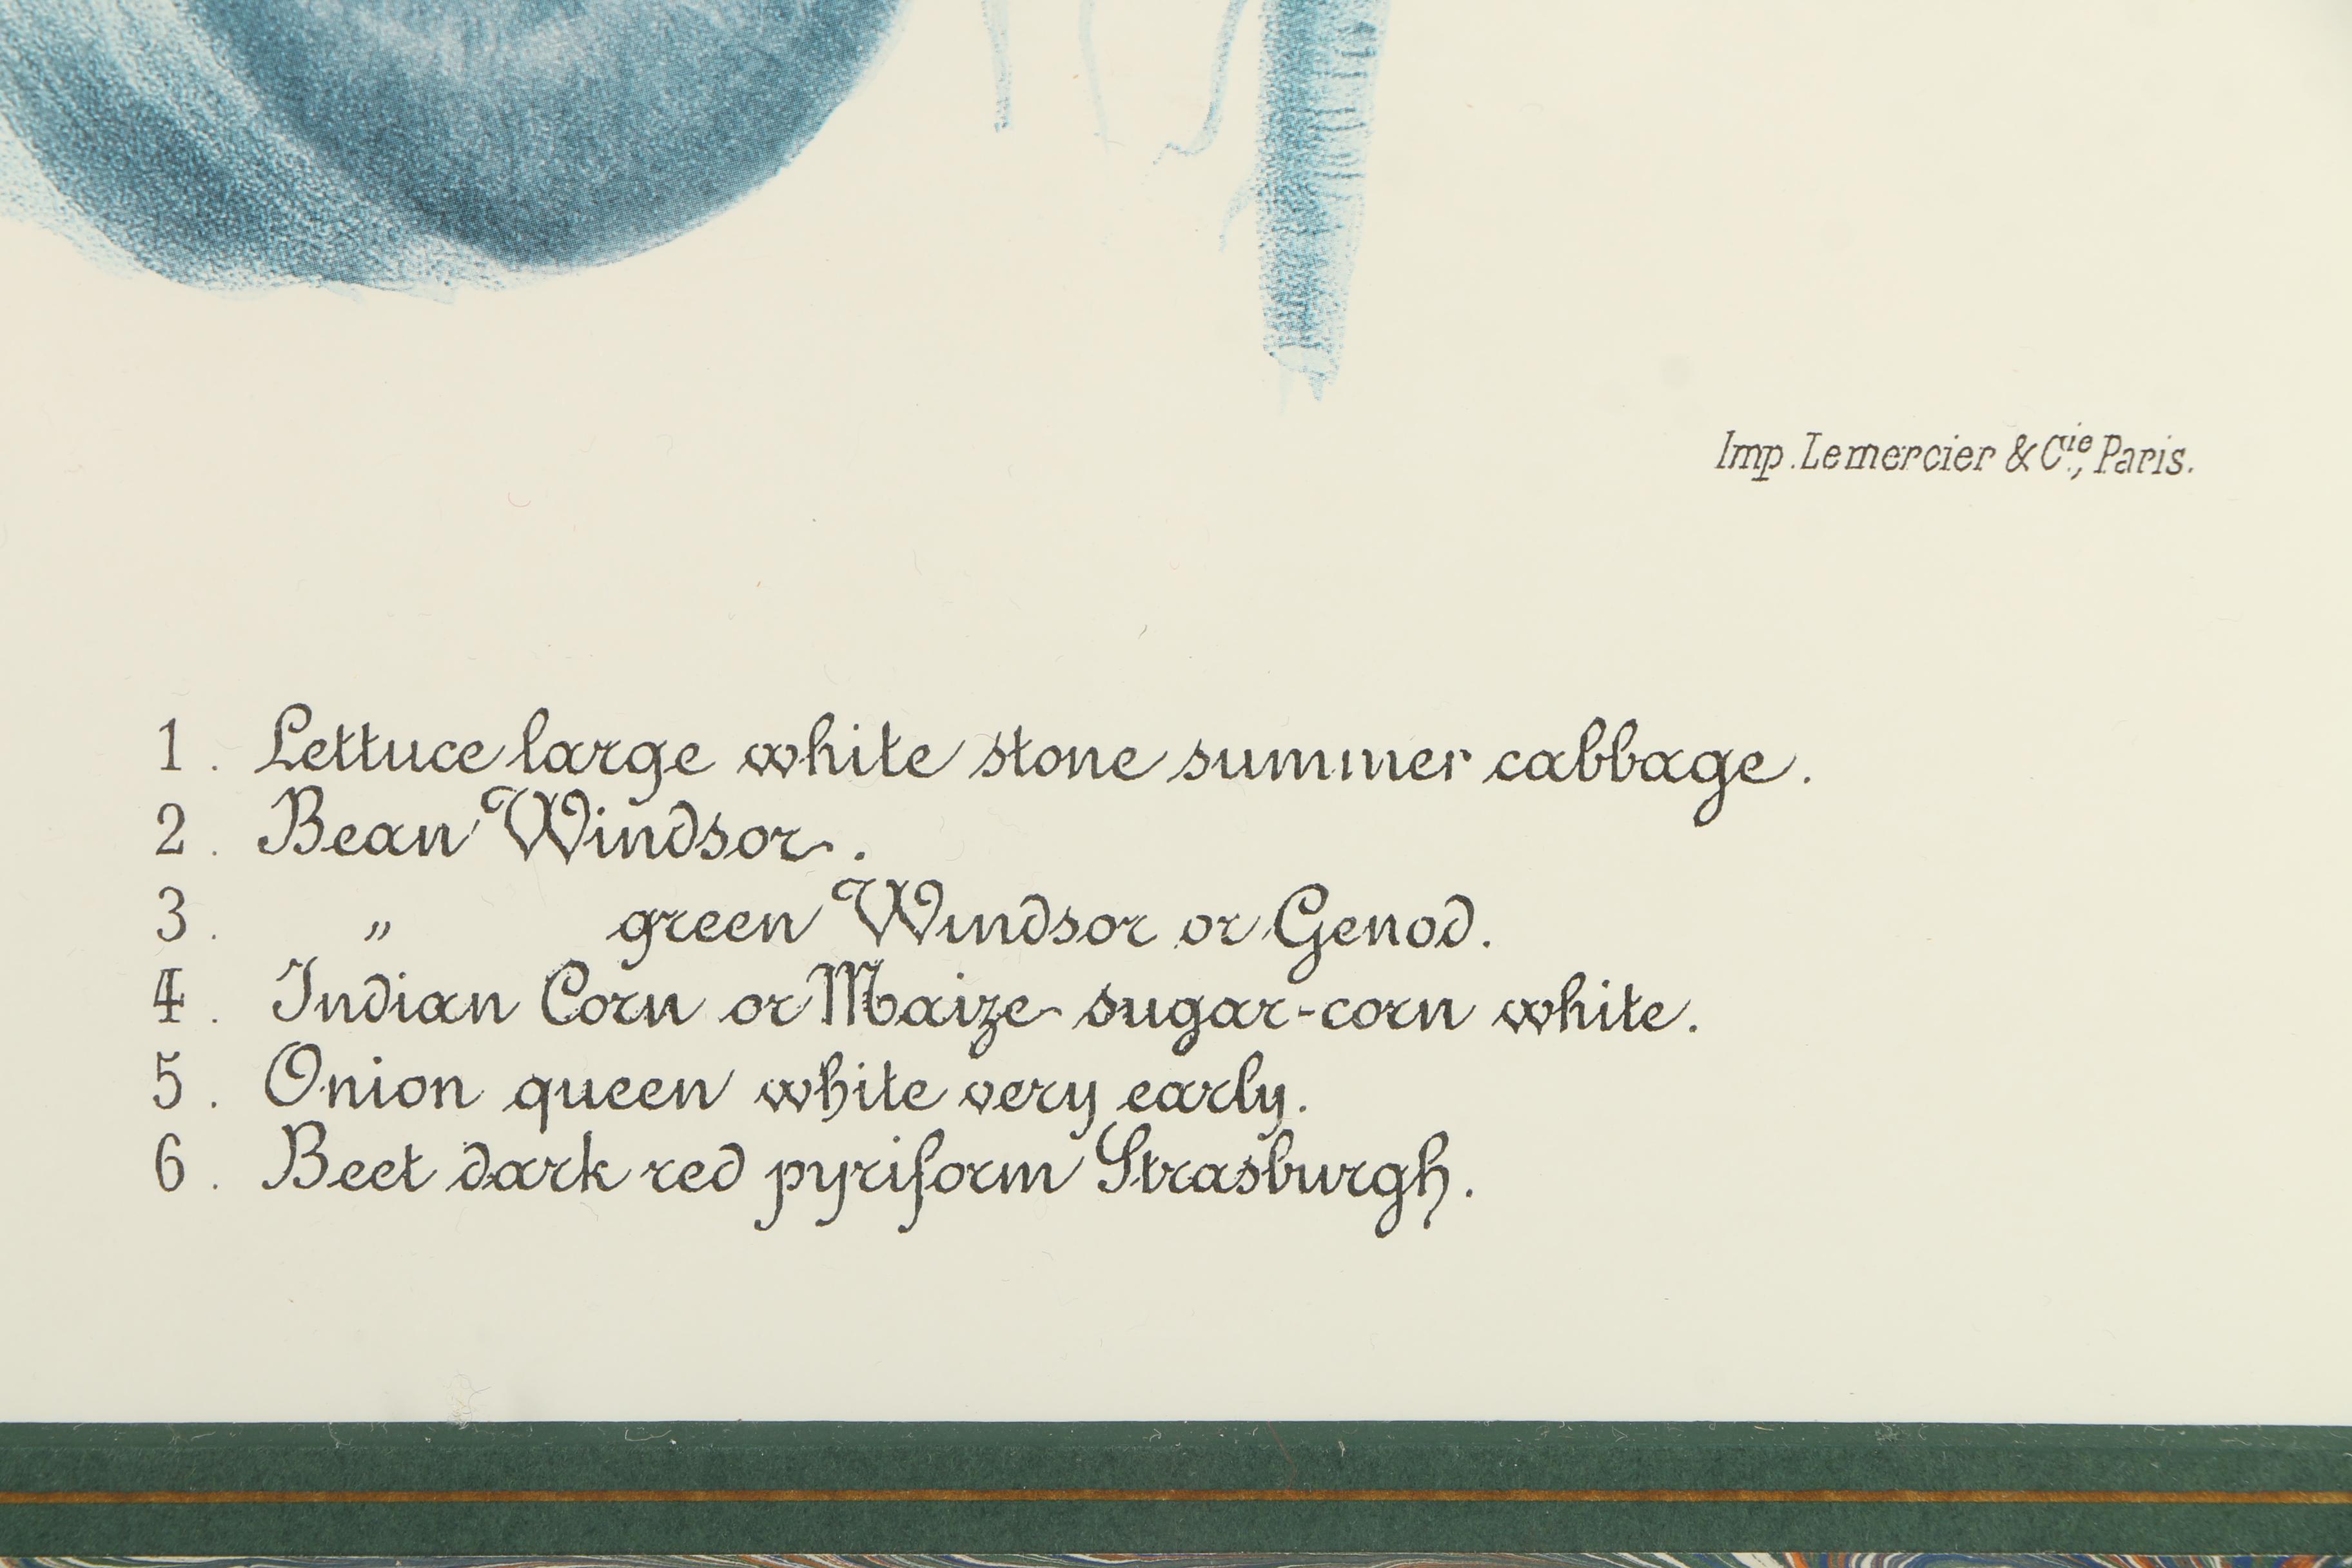 Imp. Lemercier & Cie, Paris.
1. Lettuce large white stone summer cabbage.
2. Bean Windsor.
3. „ green Windsor or Genod.
4. Indian Corn or Maize sugar-corn white.
5. Onion queen white very early.
6. Beet dark red pyriform Strasburgh.